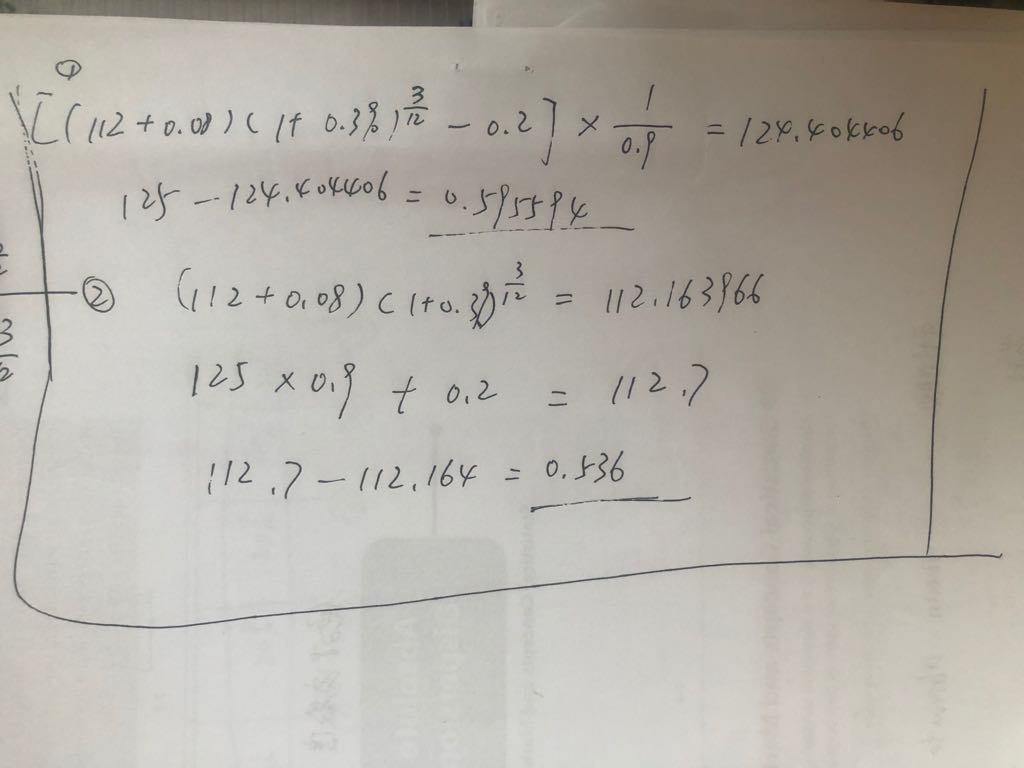 ①
[(112+0.08)(1+0.3%)^{3/12} - 0.2] × 1/0.9 = 124.404406
125 - 124.404406 = 0.595594
② (112+0.08)(1+0.3%)^{3/12} = 112.163966
125 × 0.9 + 0.2 = 112.7
112.7 - 112.164 = 0.536